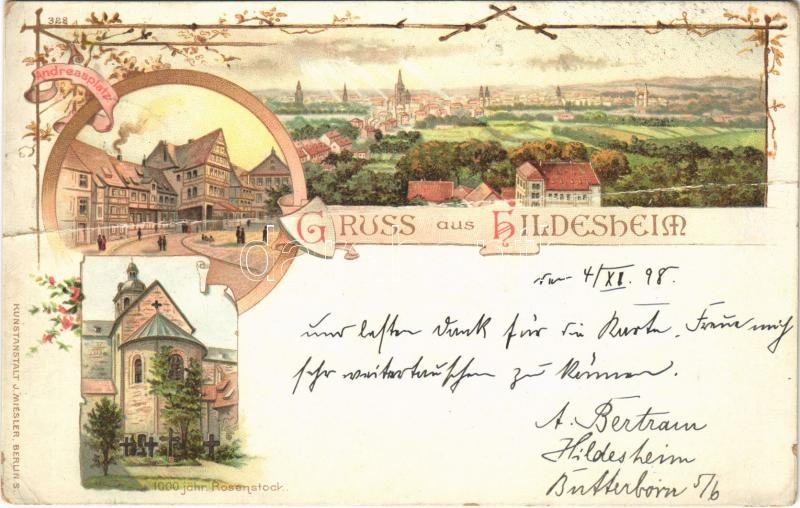 328
Andreasplatz
GRUSS aus HILDESHEIM
den 4/XI. 98.
und besten Dank für die Karte. Freue mich
sehr weitertauschen zu können.
A. Bertram
Hildesheim
Butterborn 5/6
1000 jähr. Rosenstock.
KUNSTANSTALT J. MIESLER, BERLIN. S.